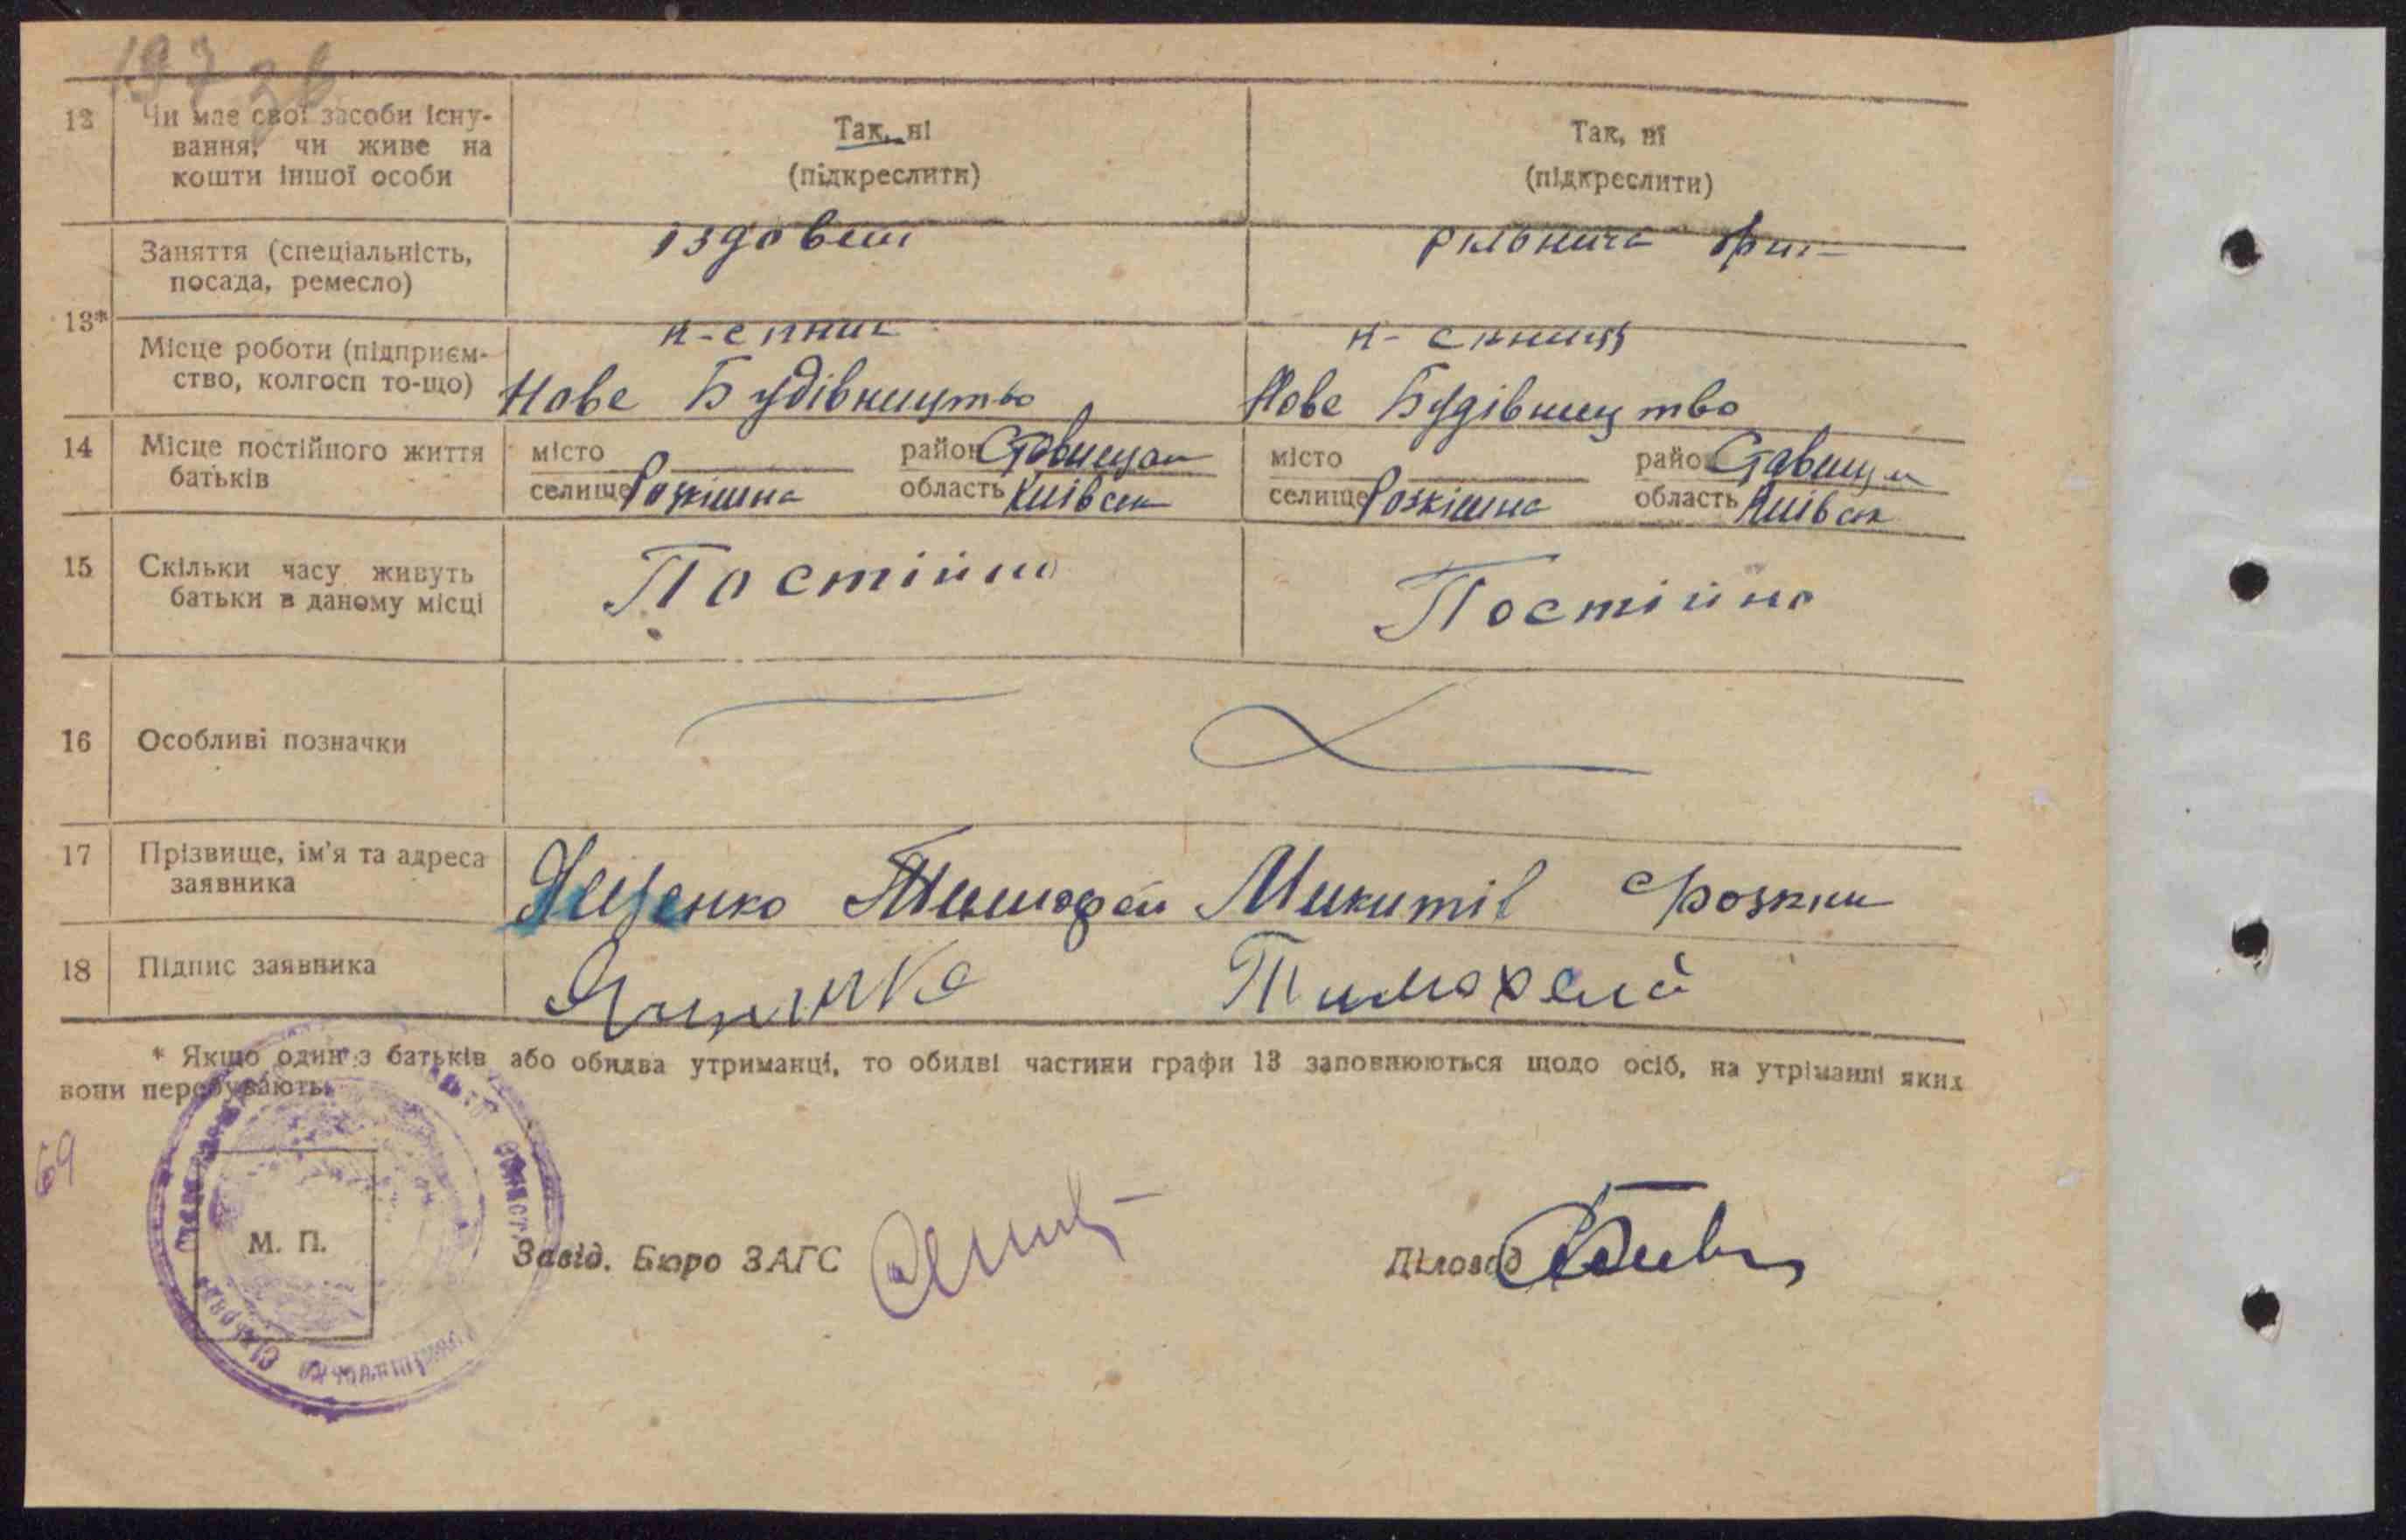 197 зв
12 Чи має свої засоби існу-
вання, чи живе на
кошти іншої особи
Так, ні
(підкреслити)
Так, ні
(підкреслити)
13*
Заняття (спеціальність,
посада, ремесло)
їздовий
рільнича
Місце роботи (підприєм-
ство, колгосп то-що)
Нове Будівництво
Нове Будівництво
14 Місце постійного життя
батьків
місто район Ставищан
селище Розкішна область Київськ
місто район Ставищан
селище Розкішна область Київськ
15 Скільки часу живуть
батьки в даному місці
Постійно
Постійно
16 Особливі позначки
17 Прізвище, ім'я та адреса
заявника
Ященко Тимофей Микитів с Розкіш
18 Підпис заявника
Ященко Тимохвей
* Якщо один з батьків або обидва утриманці, то обидві частини графи 13 заповнюються щодо осіб, на утріманні яких
вони перебувають.
69
М. П.
Завід. Бюро ЗАГС
Діловод